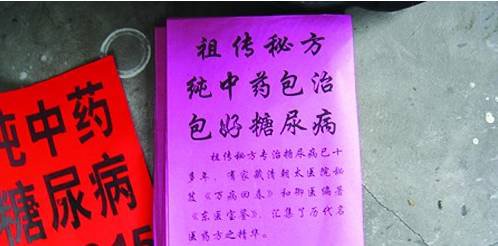 祖传秘方
纯中药包治
包好糖尿病
祖传秘方专治糖尿病已十
多年，有家藏清朝太医院秘
笈《万病回春》和御医编著
《东医宝鉴》，汇集了历代名
医药方之精华。
纯中药
糖尿病